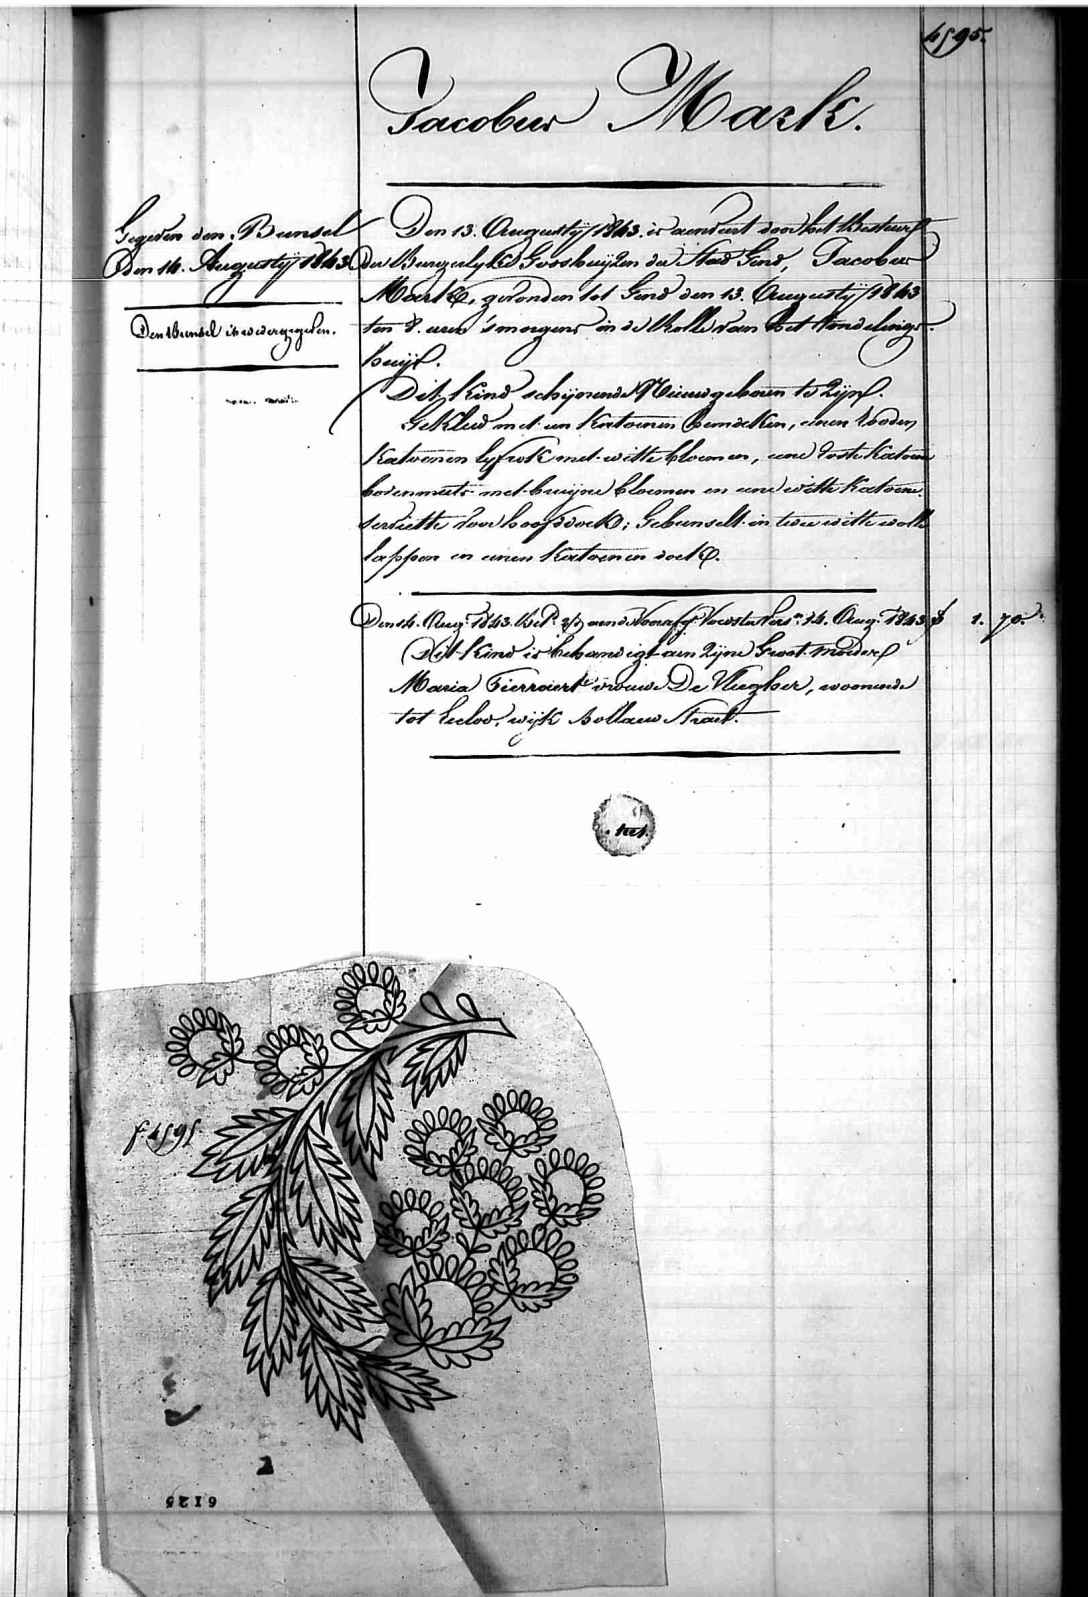 4595.
Jacobus Mark.
Gegeven den Bunsel
den 14. Augusty 1843.
Den Bunsel is wedergegeven.
Den 13. Augusty 1843. is aenveert door het Bestuer
der Burgerlyke Godshuyzen der Stad Gend, Jacobus
Mark, gevonden tot Gend den 13. Augusty 1843
ten 8. uren 's morgens in de Rolle van het Vondelings-
huys.
Dit Kind schynende Nieuwgeboren te zyn.
Gekleed met een Katoenen hemdeken, eenen rooden
Katoenen lyfrok met witte bloemen, eene roste Katoene
bovenmuts met bruyne bloemen en eene witte Katoene
serviette voor hoofddoek; Gebunselt in twee witte wolle
lappen en eenen Katoenen doek.
Den 14. Aug. 1843. 14. Aug. 1843 f 1. 70.
Dit Kind is behandigt aen zyne Groot-moeder
Maria Fierraert vrouwe De Vliegher, woonende
tot Eecloo, wyk Bollaer Straet.
f. 4595
6125